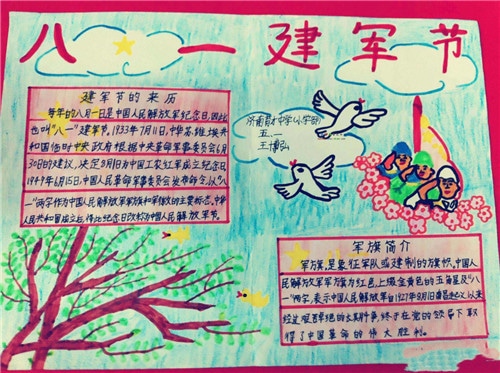 八一建军节
建军节的来历
每年的八月一日是中国人民解放军纪念日,因此
也叫"八一"建军节。1933年7月11日,中华苏维埃共
和国临时中央政府根据中央革命军事委员会6月
30日的建议,决定8月1日为中国工农红军成立纪念日。
1949年6月15日,中国人民革命军事委员会发布命令,以"八
一"两字作为中国人民解放军军旗和军徽的主要标志。中华
人民共和国成立后,将此纪念日改称为中国人民解放军建军节。
济南育才中学(小学部)
五、一
王博弘
军旗简介
军旗,是象征军队或建制的旗帜。中国人
民解放军军旗为红色,上缀金黄色的五角星及"八
一"两字,表示中国人民解放军自1927年8月1日南昌起义以来
经过艰苦卓绝的
斗争,终于在党的领导下取
得了中国革命的伟大胜利。